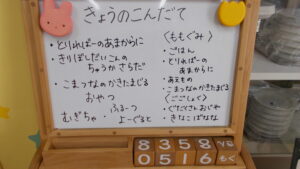 きょうのこんだて
・とりればーのあまからに
・きりぼしだいこんの
ちゅうかさらだ
・こまつなのかきたまじる
おやつ
ふるーつ
むぎちゃ ・よーぐると
〈ももぐみ〉
・ごはん
・とりればーの
あまからに
・あえもの
・こまつなのかきたまじる
〈ごごしょく〉
・ぐだくさんおじや
・きなこばなな
8 3 5 8
0 5 1 6 もく